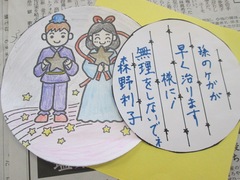 孫のケガが
早く治ります
様に!
無理をしないでね
森野利子